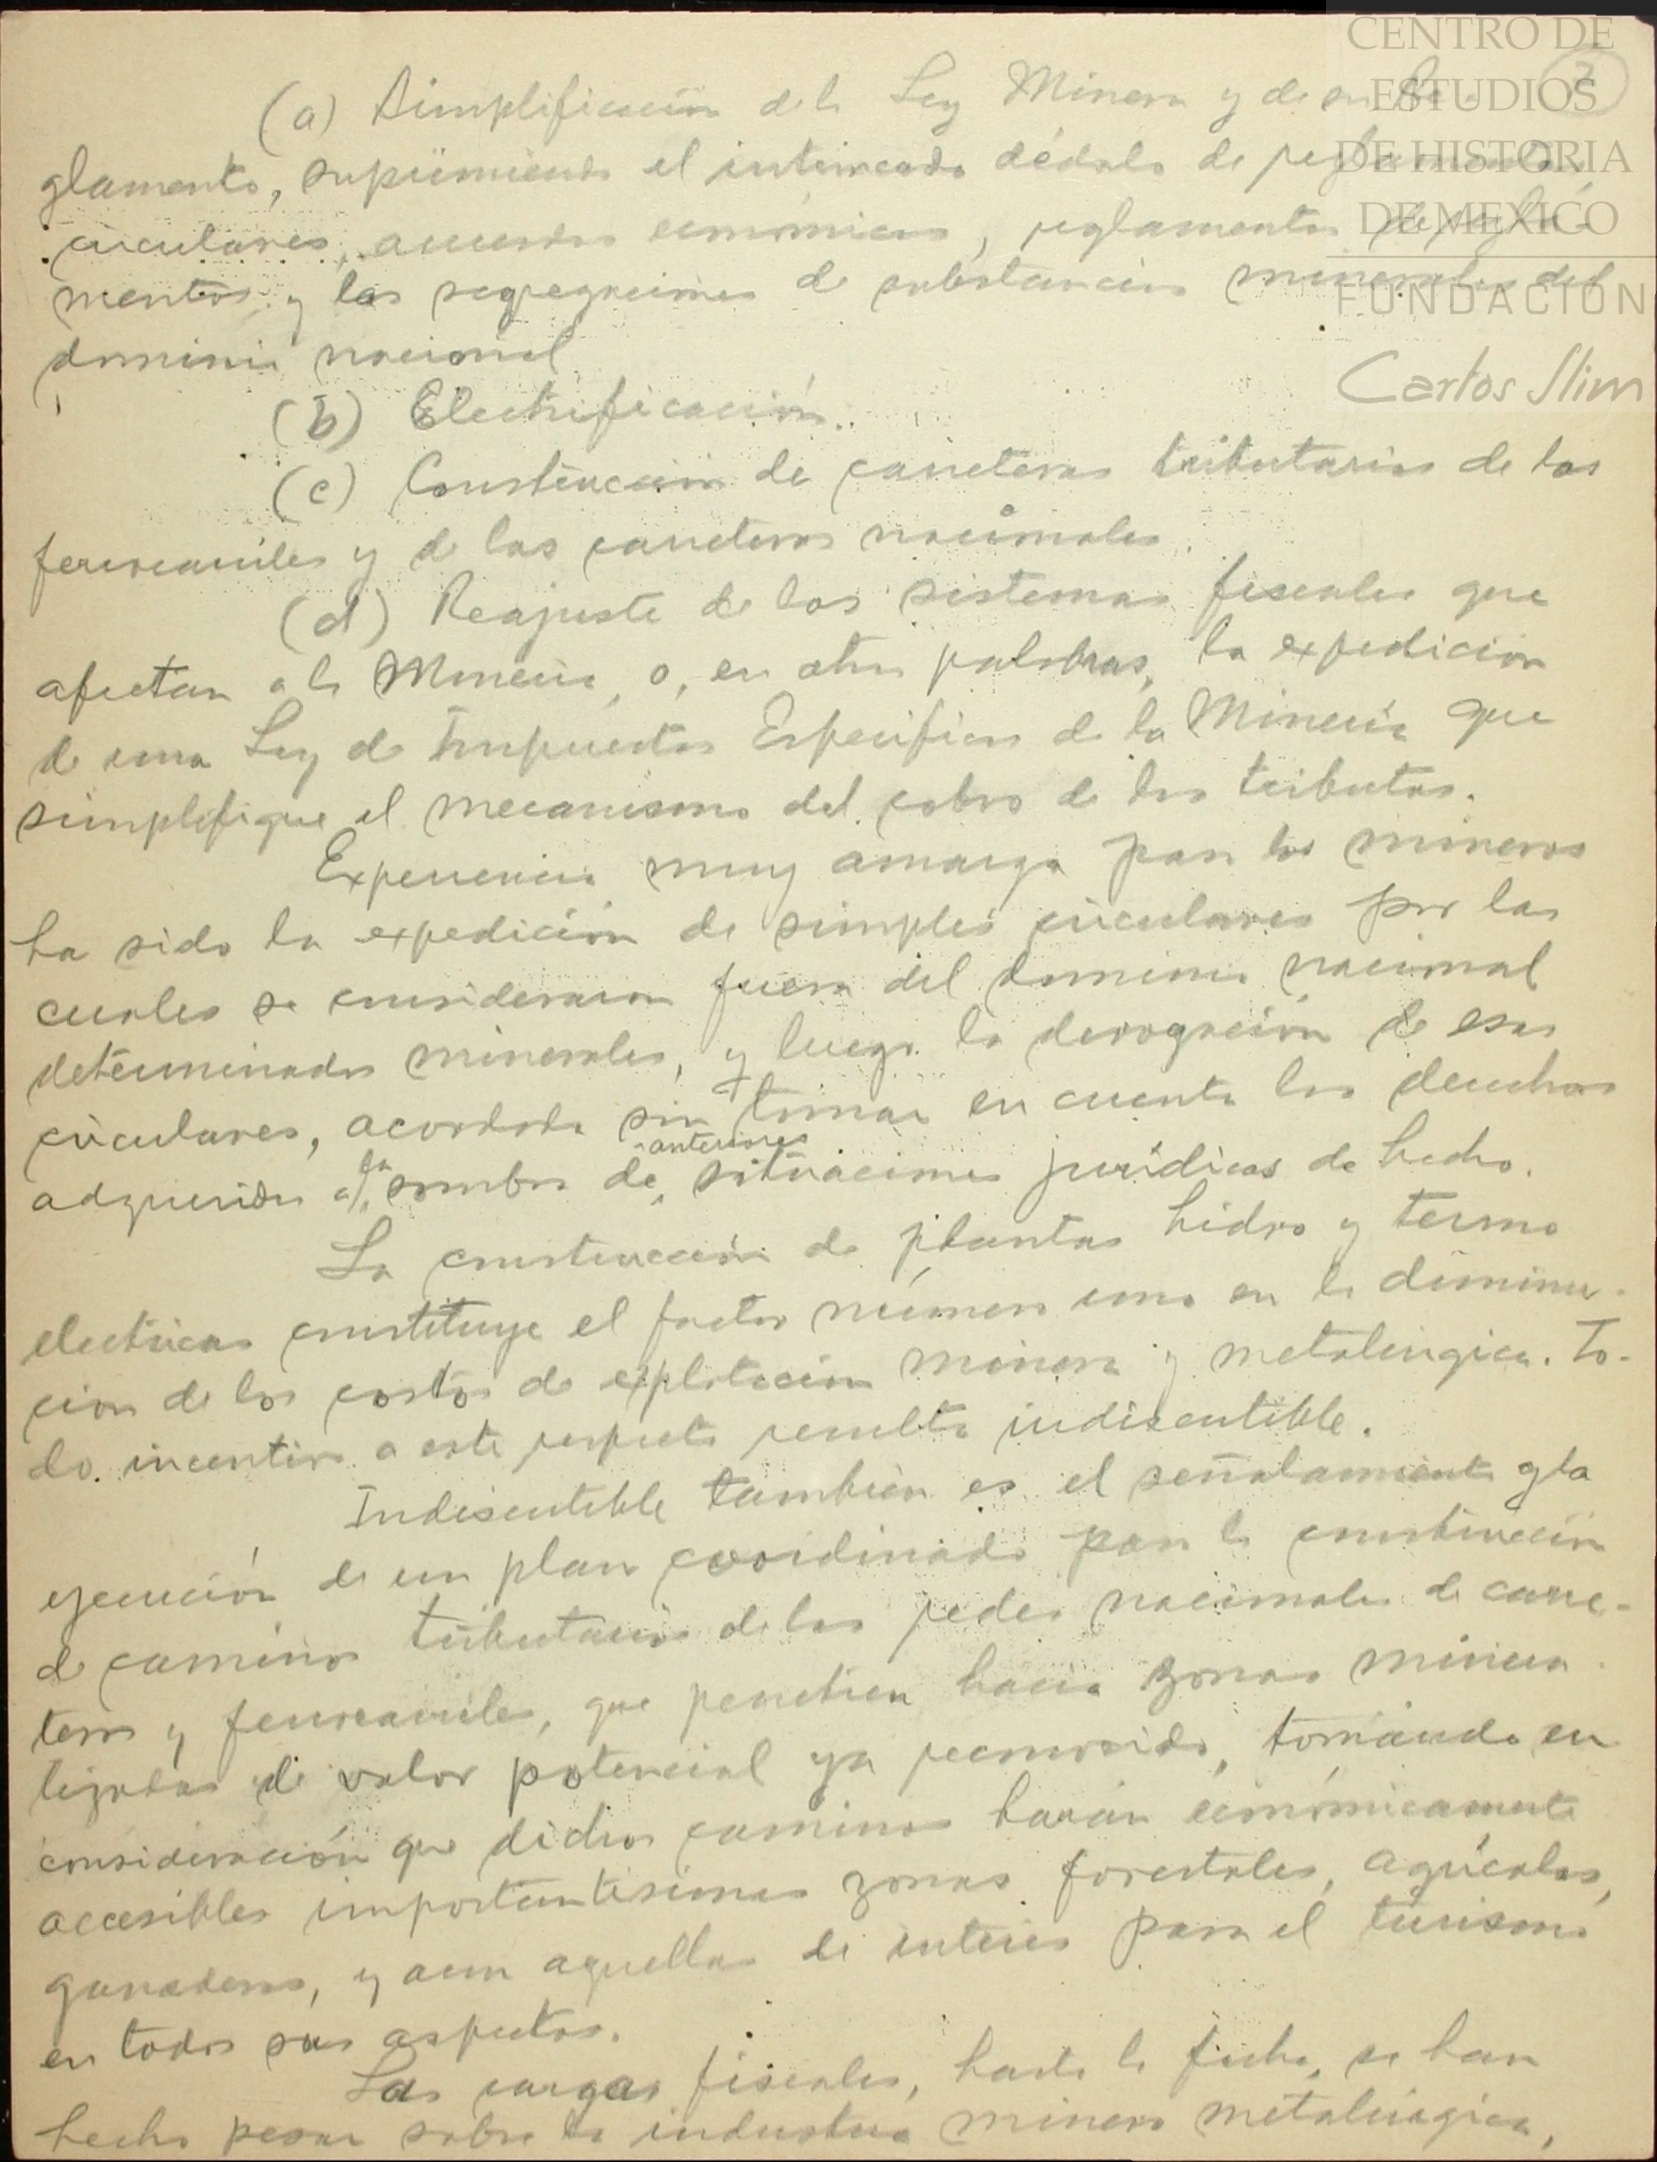 CENTRO DE
ESTUDIOS
DE HISTORIA
DE MEXICO
FUNDACION
Carlos Slim
(a) Simplificación de la Ley Minera y de su Re-
glamento, suprimiendo el intrincado dédalo de reglamentos,
circulares, acuerdos económicos, reglamentos de regla-
mentos, y las segregaciones de substancias minerales del
dominio nacional
(b) Electrificación.
(c) Construcción de carreteras tributarias de los
ferrocarriles y de las carreteras nacionales.
(d) Reajuste de los sistemas fiscales que
afectan a la Minería, o, en otras palabras, la expedición
de una Ley de Impuestos Específicos de la Minería que
simplifique el mecanismo del cobro de los tributos.
Experiencia muy amarga para los mineros
ha sido la expedición de simples circulares por las
cuales se consideraron fuera del dominio nacional
determinados minerales, y luego la derogación de esas
circulares, acordada sin tomar en cuenta los derechos
adquiridos a la sombra de anteriores situaciones jurídicas de hecho.
La construcción de plantas hidro y termo
electricas constituye el factor número uno en la diminu-
cion de los costos de explotación minera y metalúrgica. To-
do incentivo a este respecto resulta indiscutible.
Indiscutible también es el señalamiento y la
ejecución de un plan coordinado para la construcción
de caminos tributarios de las redes nacionales de carre-
teras y ferrocarriles, que penetren hacia zonas minera-
lizadas de valor potencial ya reconocido, tomando en
consideración que dichos caminos harán económicamente
accesibles importantísimas zonas forestales, agrícolas,
ganaderas, y aun aquellas de interés para el turismo
en todos sus aspectos.
Las cargas fiscales, hasta la fecha, se han
hecho pesar sobre la industria minero metalúrgica,